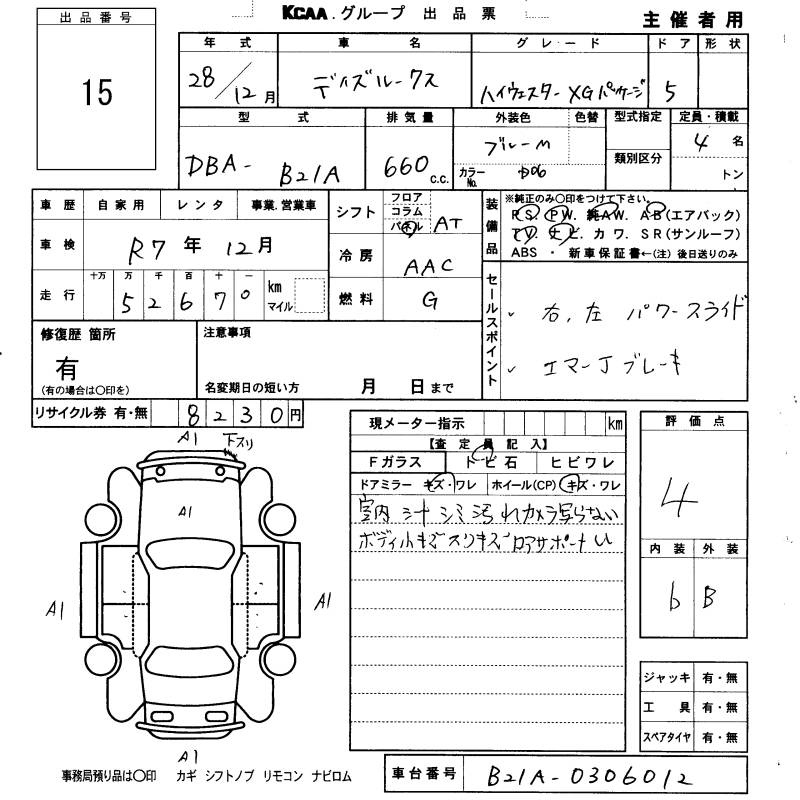 KCAA.グループ 出品票
主催者用
出品番号
15
年式 車名 グレード ドア 形状
28/12月 デイズルークス ハイウェスターXGパッケージ 5
型式 排気量 外装色 色替 型式指定 定員・積載
DBA- B21A 660c.c. ブルーM 4名
カラーNo. 類別区分 トン
車歴 自家用 レンタ 事業.営業車
シフト フロア コラム パネル AT
装備品 ※純正のみ○印をつけて下さい。
PS. PW. 純AW. AB(エアバック)
TV. ナビ. カワ. SR(サンルーフ)
ABS ・ 新車保証書←(注)後日送りのみ
車検 R7年12月
冷房 AAC
走行 十万 万 千 百 十 一 km マイル
52670
燃料 G
セールスポイント
右,左 パワースライド
エマーJブレーキ
修復歴 箇所
有
(有の場合は○印を)
注意事項
名変期日の短い方 月 日まで
リサイクル券 有・無 8230円
現メーター指示 km
【査定員記入】
Fガラス トビ石 ヒビワレ
ドアミラー キズ・ワレ ホイール(CP) キズ・ワレ
室内 汁 シミ 汚れカメラ写らない
ボディ小キズスリキズ ロアサポートU
評価点
4
内装 外装
b B
A1 下スリ
A1
A1 A1
A1
ジャッキ 有・無
工具 有・無
スペアタイヤ 有・無
事務局預り品は○印 カギ シフトノブ リモコン ナビロム
車台番号 B21A-0306012